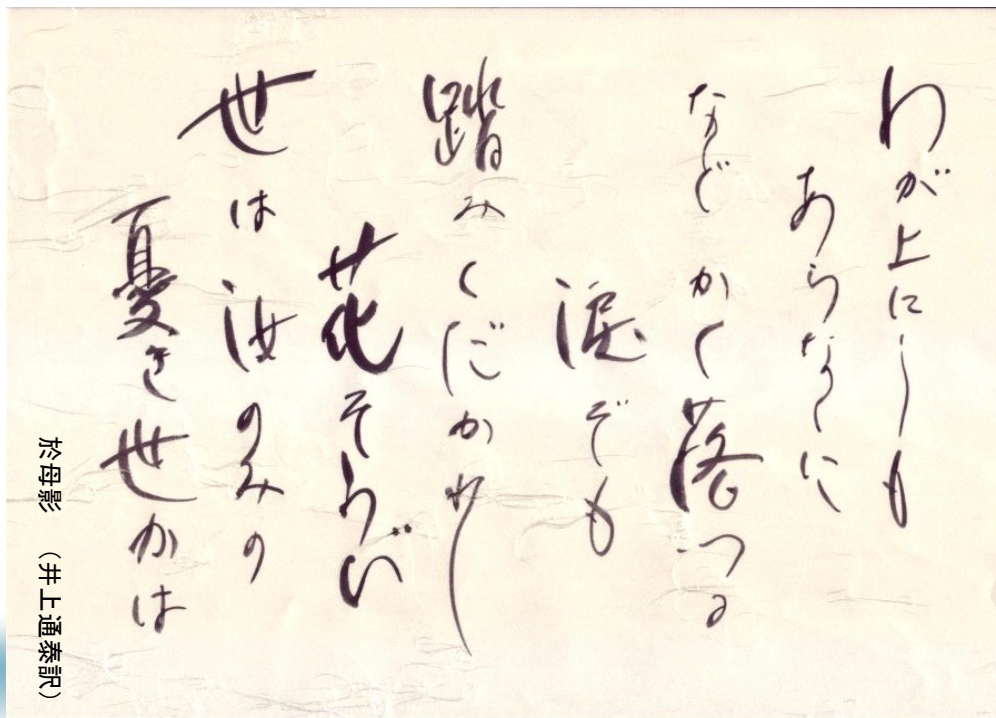 わが上にしも
あらなくに
などかく落つる
涙ぞも
踏みくだかれし
花そうび
世は汝のみの
憂き世かは
於母影　（井上通泰訳）